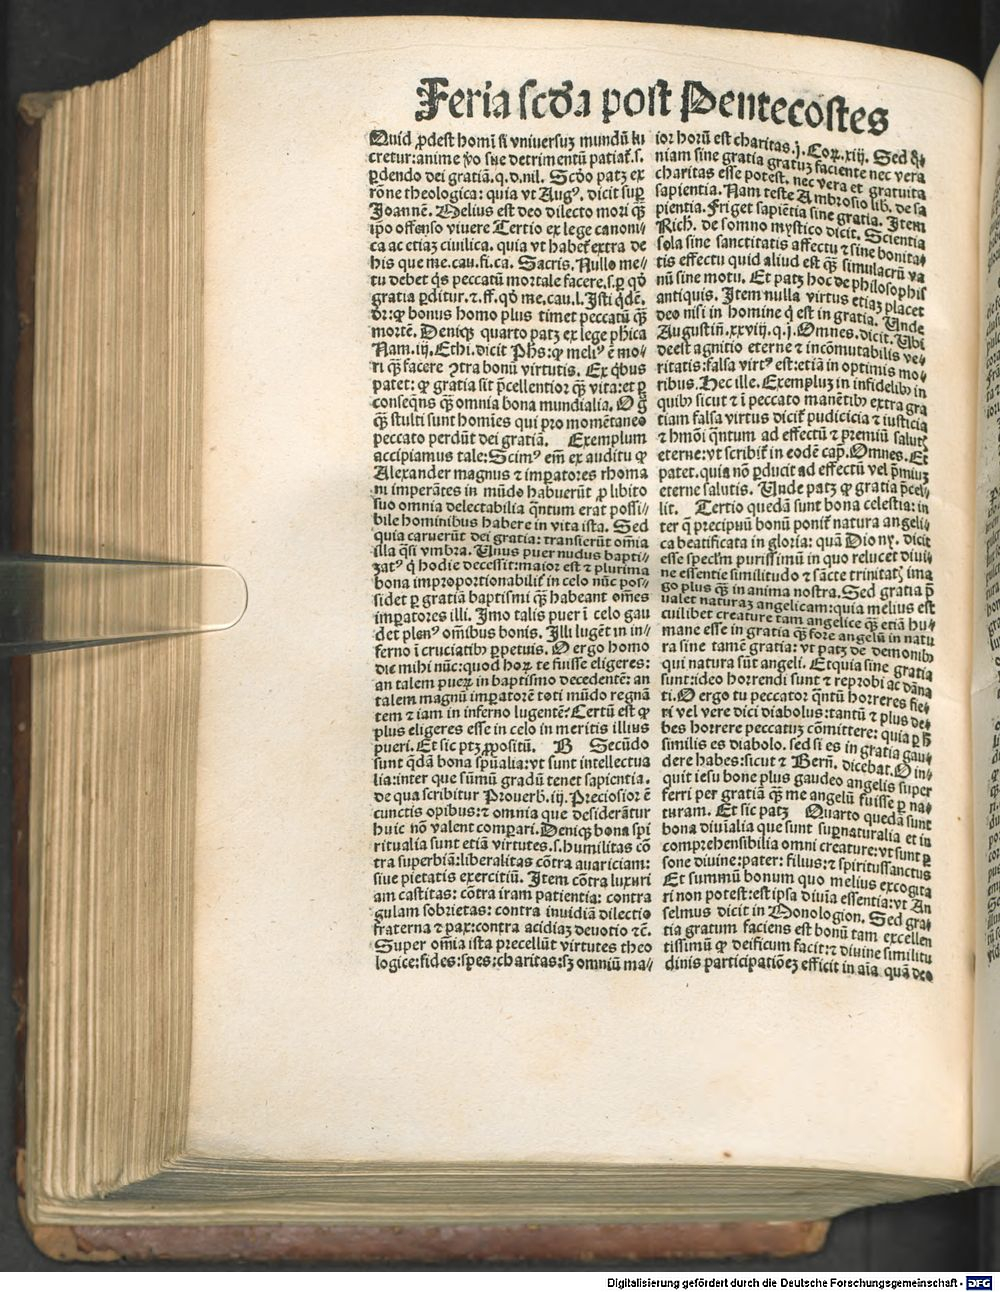 Feria scďa post Pentecostes
Quid ꝓdest homī si vniuersuȝ mundū lu
cretur: anime ꝟo sue detrimentū patiat᷑.s.
ꝑdendo dei gratiā.q.d.nil. Scďo patȝ ex
rōne theologica: quia vt Augꝰ. dicit suꝑ
Joannē. Melius est deo dilecto mori qȝ̄
ip̄o offenso viuere Tertio ex lege canoni⸗
ca ac etiaȝ ciuilica. quia vt habet᷑ extra de
his que me.cau.fi.ca. Sacris. Nullo me⸗
tu debet q̇s peccatū mortale facere.s.ꝑ qď
gratia ꝑditur.⁊.ff.qď me.cau.l. Isti q̇dē.
dr̄: ꝙ bonus homo plus timet peccatū qȝ̄
mortē. Deniqȝ quarto patȝ ex lege phīca
Nam.iij. Ethi. dicit Phs: ꝙ meliꝰ ē mo⸗
ri qȝ̄ facere ꝯtra bonū virtutis. Ex q̇bus
patet: ꝙ gratia sit p̄cellentior qȝ̄ vita: et ꝑ
conseq̄ns qȝ̄ omnia bona mundialia. O g̊
qȝ̄ stulti sunt homīes qui pro momētaneo
peccato perdūt dei gratiā. Exemplum
accipiamus tale: Scimꝰ em̄ ex auditu ꝙ
Alexander magnus ⁊ imꝑatores rhoma
ni imperātes in mūdo habuerūt ꝓ libito
suo omnia delectabilia q̄ntum erat possi⸗
bile hominibus habere in vita ista. Sed
quia caruerūt dei gratia: transierūt om̄ia
illa q̄si vmbra. Unus puer nudus bapti⸗
zatꝰ q̇ hodie decessit: maior est ⁊ plurima
bona improportionabilit᷑ in celo nūc pos⸗
sidet ꝑ gratiā baptismi qȝ̄ habeant om̄es
imꝑatores illi. Imo talis puer ī celo gau
det plenꝰ om̄ibus bonis. Illi lugēt in in⸗
ferno ī cruciatibꝰ ꝑpetuis. O ergo homo
dic mihi nūc: quod horꝝ te fuisse eligeres:
an talem puerꝝ in baptismo decedentē: an
talem magnū imꝑatorē toti mūdo regnā
tem ⁊ iam in inferno lugentē? Certū est ꝙ
plus eligeres esse in celo in meritis illius
pueri. Et sic ptȝ ꝓpositū. B Secūdo
sunt q̄dā bona spūalia: vt sunt intellectua
lia: inter que sūmū gradū tenet sapientia.
de qua scribitur Prouerb.iij. Preciosior ē
cunctis opibus: ⁊ omnia que desiderātur
huic nō valent comꝑari. Deniqȝ bona spi
ritualia sunt etiā virtutes.s. humilitas cō
tra superbiā: liberalitas cōtra auariciam:
siue pietatis exercitiū. Item cōtra luxuri
am castitas: cōtra iram patientia: contra
gulam sobrietas: contra inuidiā dilectio
fraterna ⁊ pax: contra acidiaȝ deuotio ⁊c̄.
Super om̄ia ista precellūt virtutes theo
logice: fides: spes: charitas: sȝ omniū ma⸗
ior horū est charitas.j. Coꝝ.xiij. Sed q̇
niam sine gratia gratuȝ faciente nec vera
charitas esse potest. nec vera et gratuita
sapientia. Nam teste Ambrosio lib. de sa
pientia. Friget sapiētia sine gratia. Item
Rich. de somno mystico dicit. Scientia
sola sine sanctitatis affectu ⁊ sine bonita⸗
tis effectu quid aliud est qȝ̄ simulacrū va
nū sine motu. Et patȝ hoc de philosophis
antiquis. Item nulla virtus etiaȝ placet
deo nisi in homine q̇ est in gratia. Unde
Augustiñ.xxviij.q.j. Omnes. dicit. Ubi
deest agnitio eterne ⁊ incōmutabilis ve⸗
ritatis: falsa virtꝰ est: etiā in optimis mo⸗
ribus. Hec ille. Exempluȝ in infidelibꝰ in
quibꝰ sicut ⁊ ī peccato manētibꝰ extra gra
tiam falsa virtus dicit᷑ pudicicia ⁊ iusticia
⁊ hmōi q̄ntum ad effectū ⁊ premiū saluꝭ
eterne: vt scribit᷑ in eodē cap̄. Omnes. Et
patet. quia nō ꝓducit ad effectū vel p̄miuȝ
eterne salutis. Unde patȝ ꝙ gratia p̄cel⸗
lit. Tertio quedā sunt bona celestia: in
ter q̄ precipuū bonū ponit᷑ natura angeli⸗
ca beatificata in gloria: quā Dionỹ. dicit
esse specl̄m purissimū in quo relucet diui⸗
ne essentie similitudo ⁊ sācte trinitatꝭ ima
go plus qȝ̄ in anima nostra. Sed gratia p̄
ualet naturaȝ angelicam: quia melius est
cuilibet creature tam angelice qȝ̄ etiā hu⸗
mane esse in gratia qȝ̄ fore angelū in natu
ra sine tamē gratia: vt patȝ de demonibꝰ
qui natura sūt angeli. Et quia sine gratia
sunt: ideo horrendi sunt ⁊ reprobi ac dāna
ti. O ergo tu peccator q̄ntū horreres fie⸗
ri vel vere dici diabolus: tantū ⁊ plus de⸗
bes horrere peccatuȝ cōmittere: quia ꝑ ħ
similis es diabolo. sed si es in gratia gau⸗
dere habes: sicut ⁊ Berñ. dicebat. O in⸗
quit iesu bone plus gaudeo angelis super
ferri per gratiā qȝ̄ me angelū fuisse ꝑ na⸗
turam. Et sic patȝ Quarto quedā sunt
bona diuīalia que sunt suꝑnaturalia et in
comprehensibilia omni creature: vt sunt ꝑ
sone diuine: pater: filius: ⁊ spiritussanctus
Et summū bonum quo melius excogita
ri non potest: est ipsa diuīa essentia: vt An
selmus dicit in Monologion. Sed gra⸗
tia gratum faciens est bonū tam excellen
tissimū ꝙ deificum facit: ⁊ diuine similitu
dinis participatiōeȝ efficit in aīa quā deo
Digitalisierung gefördert durch die Deutsche Forschungsgemeinschaft - DFG